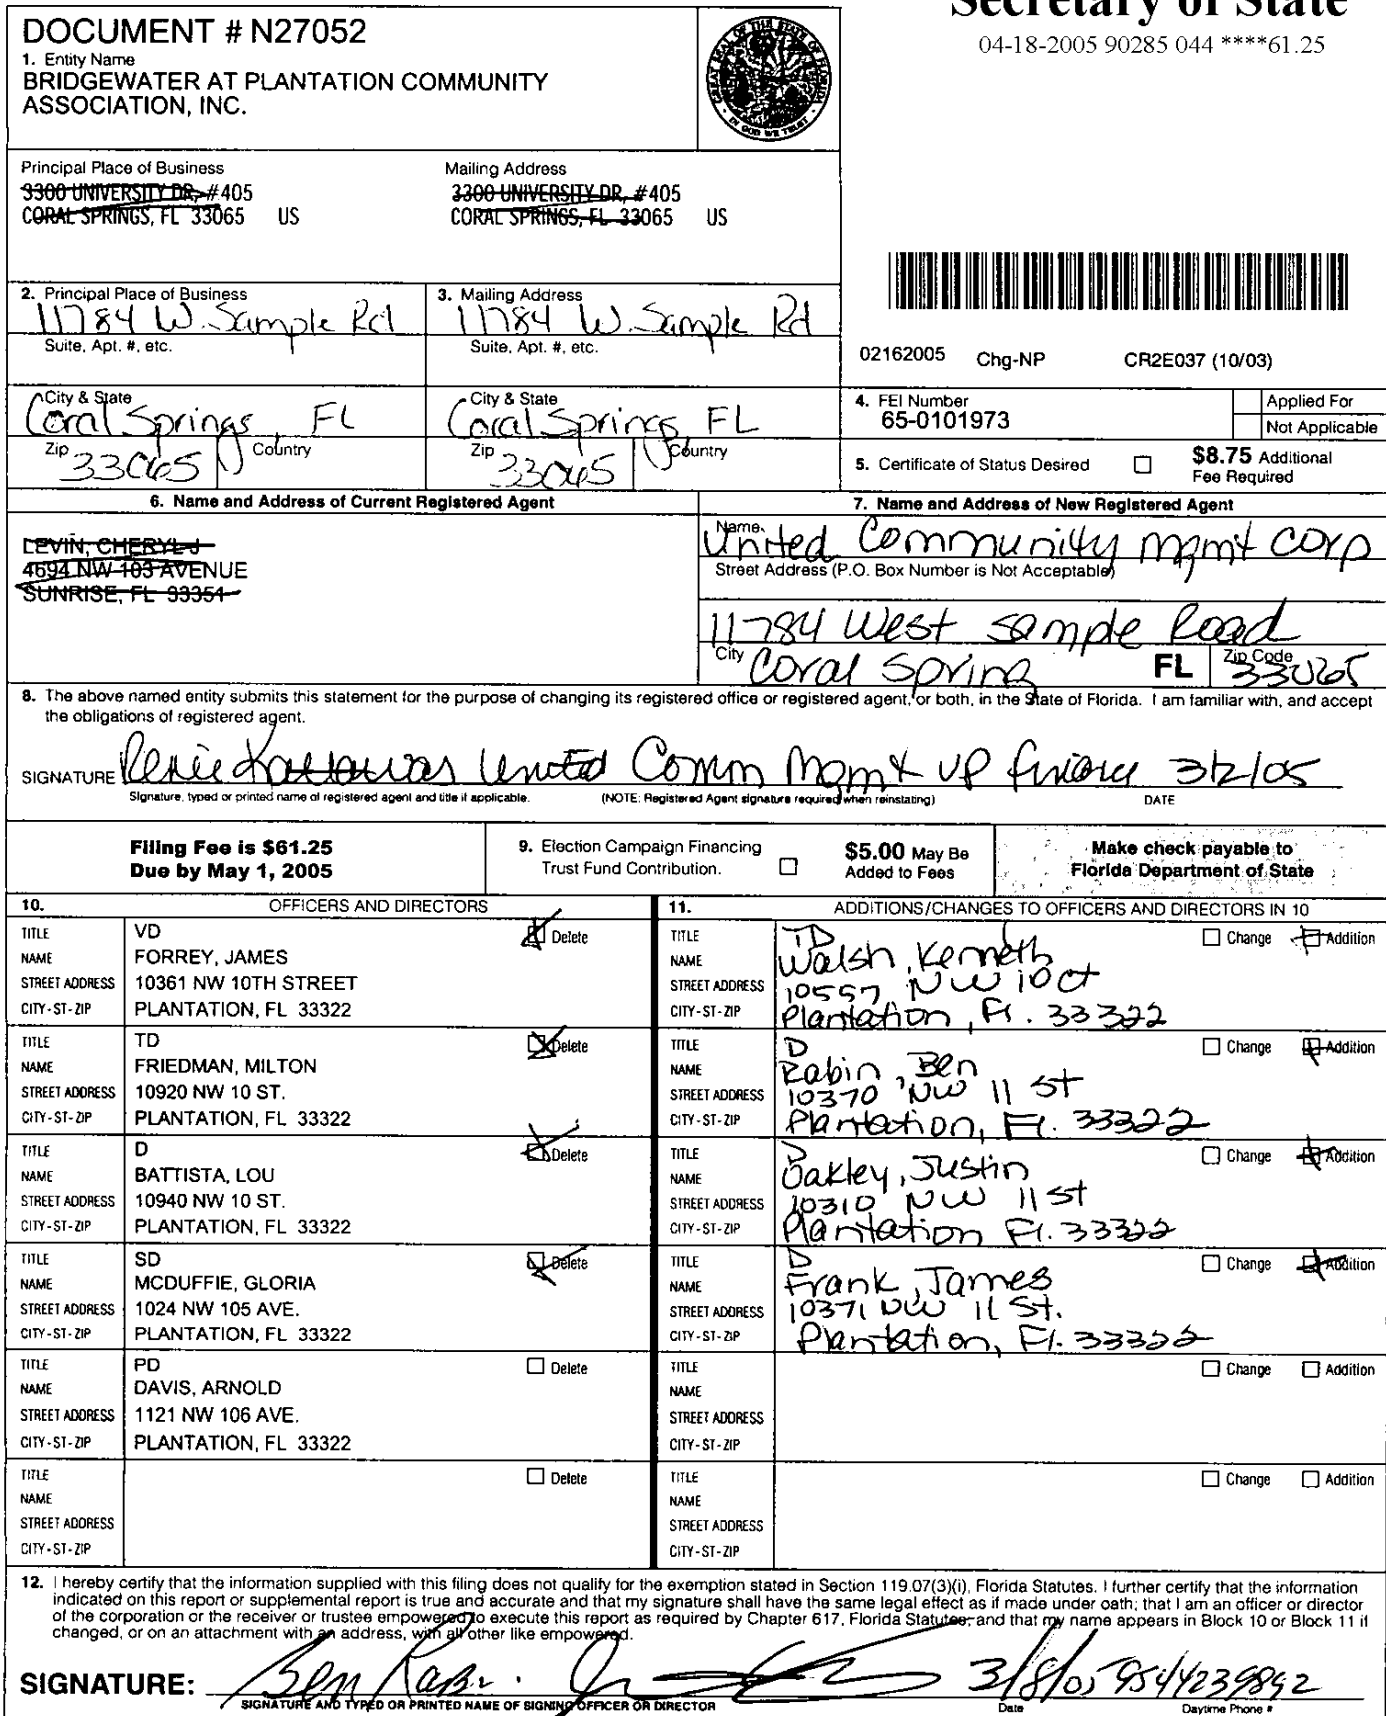 Secretary of State
04-18-2005 90285 044 ****61.25
DOCUMENT # N27052
1. Entity Name
BRIDGEWATER AT PLANTATION COMMUNITY
ASSOCIATION, INC.
GREAT SEAL OF THE STATE OF FLORIDA
IN GOD WE TRUST
Principal Place of Business
3300 UNIVERSITY DR, #405
CORAL SPRINGS, FL 33065 US
Mailing Address
3300 UNIVERSITY DR, #405
CORAL SPRINGS, FL 33065 US
2. Principal Place of Business
11784 W. Sample Rd
Suite, Apt. #, etc.
City & State
Coral Springs, FL
Zip 33065 Country
3. Mailing Address
11784 W. Sample Rd
Suite, Apt. #, etc.
City & State
Coral Springs FL
Zip 33065 Country
02162005 Chg-NP CR2E037 (10/03)
4. FEI Number
65-0101973
Applied For
Not Applicable
5. Certificate of Status Desired
$8.75 Additional
Fee Required
6. Name and Address of Current Registered Agent
LEVIN, CHERYL J
4694 NW 103 AVENUE
SUNRISE, FL 33351
7. Name and Address of New Registered Agent
Name
United Community mgmt corp
Street Address (P.O. Box Number is Not Acceptable)
11784 West Sample Road
City Coral Spring FL Zip Code 33065
8. The above named entity submits this statement for the purpose of changing its registered office or registered agent, or both, in the State of Florida. I am familiar with, and accept
the obligations of registered agent.
SIGNATURE United Comm Mgmt VP finance 3/2/05
Signature, typed or printed name of registered agent and title if applicable. (NOTE: Registered Agent signature required when reinstating) DATE
Filing Fee is $61.25
Due by May 1, 2005
9. Election Campaign Financing
Trust Fund Contribution.
$5.00 May Be
Added to Fees
Make check payable to
Florida Department of State
10. OFFICERS AND DIRECTORS
TITLE VD Delete
NAME FORREY, JAMES
STREET ADDRESS 10361 NW 10TH STREET
CITY-ST-ZIP PLANTATION, FL 33322
TITLE TD Delete
NAME FRIEDMAN, MILTON
STREET ADDRESS 10920 NW 10 ST.
CITY-ST-ZIP PLANTATION, FL 33322
TITLE D Delete
NAME BATTISTA, LOU
STREET ADDRESS 10940 NW 10 ST.
CITY-ST-ZIP PLANTATION, FL 33322
TITLE SD Delete
NAME MCDUFFIE, GLORIA
STREET ADDRESS 1024 NW 105 AVE.
CITY-ST-ZIP PLANTATION, FL 33322
TITLE PD Delete
NAME DAVIS, ARNOLD
STREET ADDRESS 1121 NW 106 AVE.
CITY-ST-ZIP PLANTATION, FL 33322
TITLE Delete
NAME
STREET ADDRESS
CITY-ST-ZIP
11. ADDITIONS/CHANGES TO OFFICERS AND DIRECTORS IN 10
TITLE TD Change Addition
NAME Walsh, Kenneth
STREET ADDRESS 10557 NW 10 Ct
CITY-ST-ZIP Plantation, Fl. 33322
TITLE D Change Addition
NAME Rabin, Ben
STREET ADDRESS 10370 NW 11 St
CITY-ST-ZIP Plantation, Fl. 33322
TITLE D Change Addition
NAME Oakley, Justin
STREET ADDRESS 10310 NW 11 St
CITY-ST-ZIP Plantation Fl. 33322
TITLE D Change Addition
NAME Frank, James
STREET ADDRESS 10371 NW 11 St.
CITY-ST-ZIP Plantation, Fl. 33322
TITLE Change Addition
NAME
STREET ADDRESS
CITY-ST-ZIP
TITLE Change Addition
NAME
STREET ADDRESS
CITY-ST-ZIP
12. I hereby certify that the information supplied with this filing does not qualify for the exemption stated in Section 119.07(3)(i), Florida Statutes. I further certify that the information
indicated on this report or supplemental report is true and accurate and that my signature shall have the same legal effect as if made under oath; that I am an officer or director
of the corporation or the receiver or trustee empowered to execute this report as required by Chapter 617, Florida Statutes; and that my name appears in Block 10 or Block 11 if
changed, or on an attachment with an address, with all other like empowered.
SIGNATURE: Ben Rabin 3/8/05 9544239892
SIGNATURE AND TYPED OR PRINTED NAME OF SIGNING OFFICER OR DIRECTOR Date Daytime Phone #